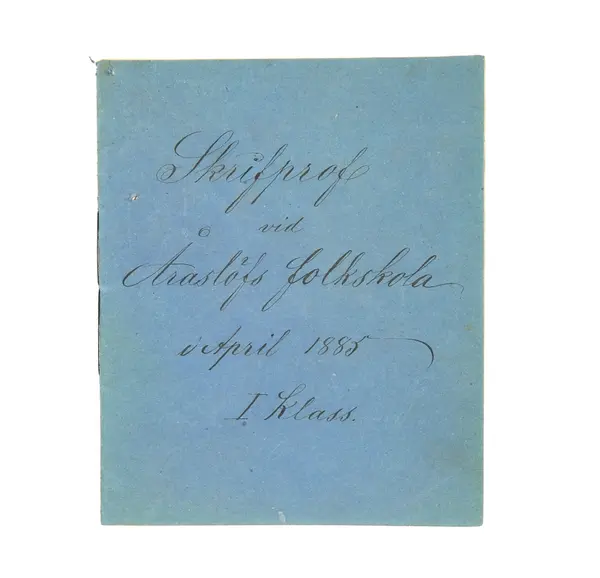 Skrifprof
vid
Åraslöfs folkskola
i April 1885
I Klass.